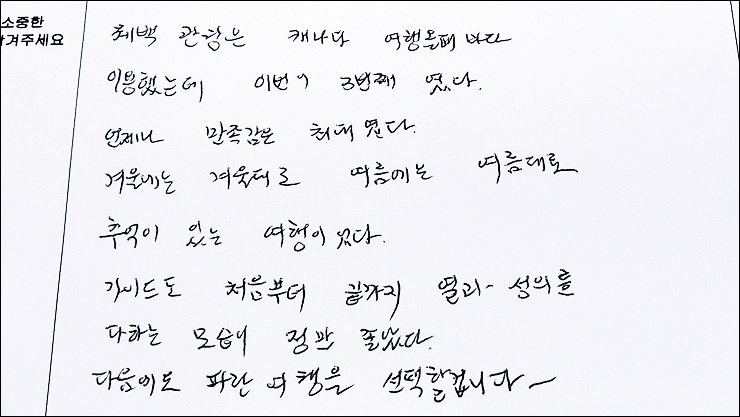 소중한
남겨주세요
최백 관광은 캐나다 여행올때 마다
이용했는데 이번이 3번째 였다.
언제나 만족감은 최대 였다.
겨울에는 겨울대로 여름에는 여름대로
추억이 있는 여행이 었다.
가이드도 처음부터 끝까지 열과 성의를
다하는 모습이 정말 좋았다.
다음에도 파란 여행을 선택할겁니다~